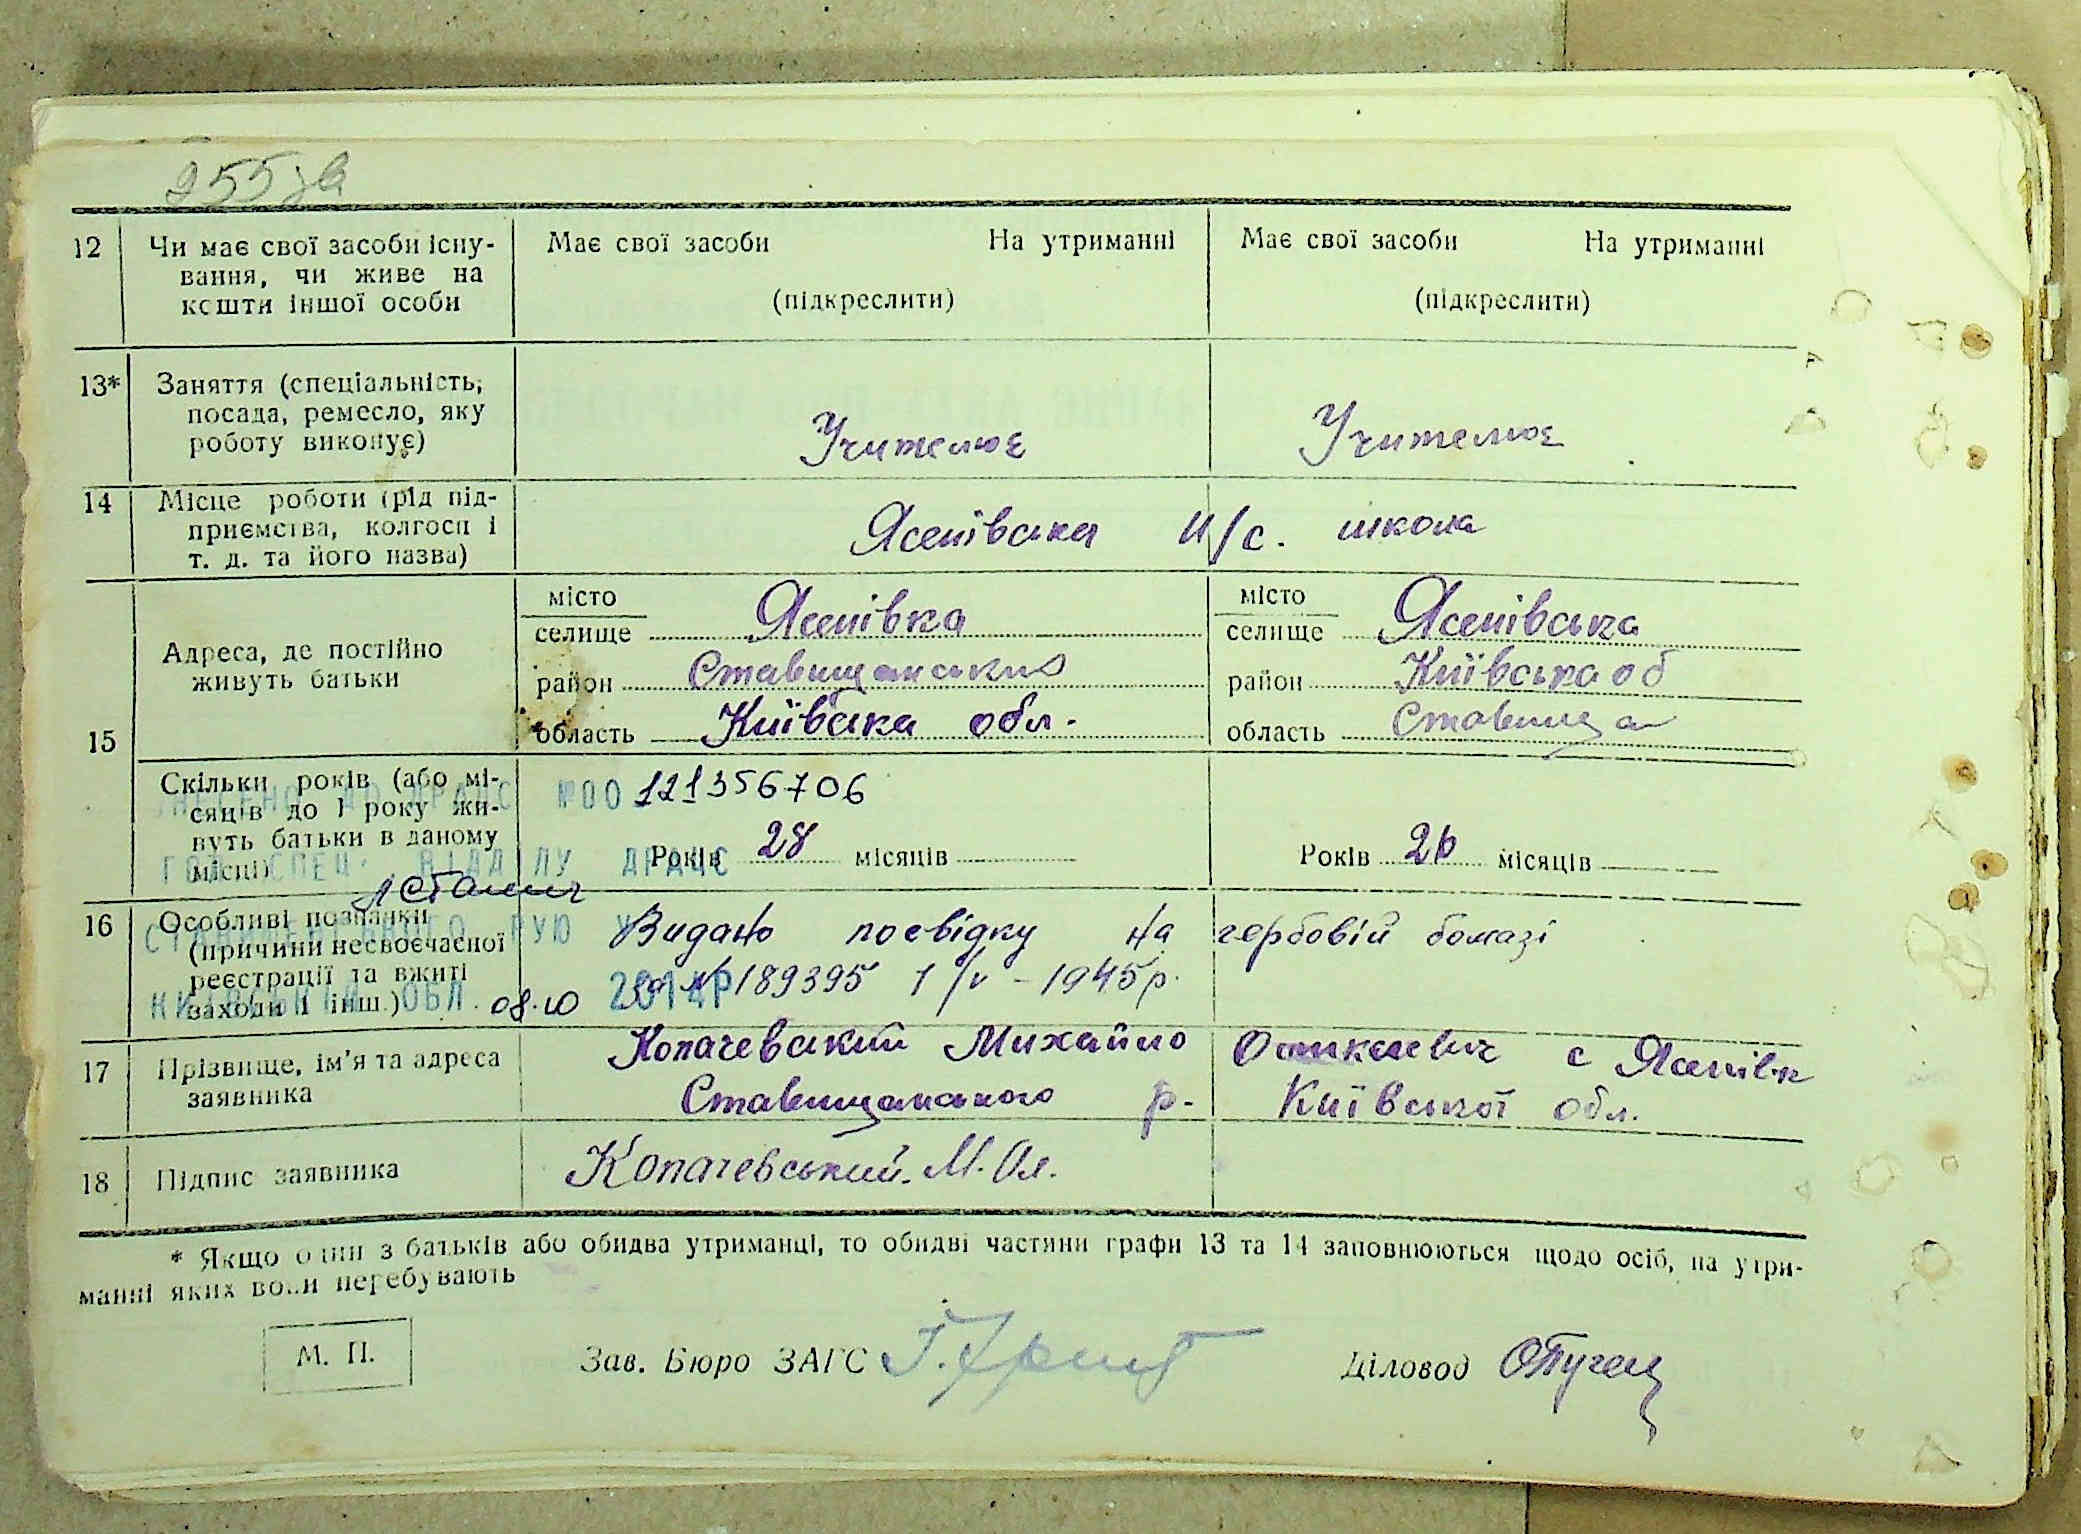 255 зв
12 Чи має свої засоби існу- Має свої засоби На утриманні Має свої засоби На утриманні
вання, чи живе на
кошти іншої особи (підкреслити) (підкреслити)
13* Заняття (спеціальність,
посада, ремесло, яку
роботу виконує) Учителює Учителює
14 Місце роботи (рід під-
приємства, колгосп і Ясенівська н/с. школа
т. д. та його назва)
15 Адреса, де постійно
живуть батьки
місто
селище Ясенівка
район Ставищанський
область Київська обл.
місто
селище Ясенівська
район Київська об
область Ставища
Скільки років (або мі-
сяців до 1 року жи-
вуть батьки в даному
місці) Років 28 місяців Років 26 місяців
ДРАЦС №00 121356706
ГОЛ. СПЕЦ. ВІДДІЛУ ДРАЦС
РУЮ
КИЇВСЬКА ОБЛ. 08.10 2014Р
16 Особливі познаки Видано посвідку на гербовій бомазі
(причини несвоєчасної
реєстрації та вжиті за № 189395 1/V - 1945 р.
заходи і інш.)
17 Прізвище, ім'я та адреса Копачевський Михайло с Ясенівк
заявника Ставищанського р. Київської обл.
18 Підпис заявника Копачевський. М. Ол.
* Якщо один з батьків або обидва утриманці, то обидві частини графи 13 та 14 заповнюються щодо осіб, на утри-
манні яких вони перебувають
М. П. Зав. Бюро ЗАГС Діловод